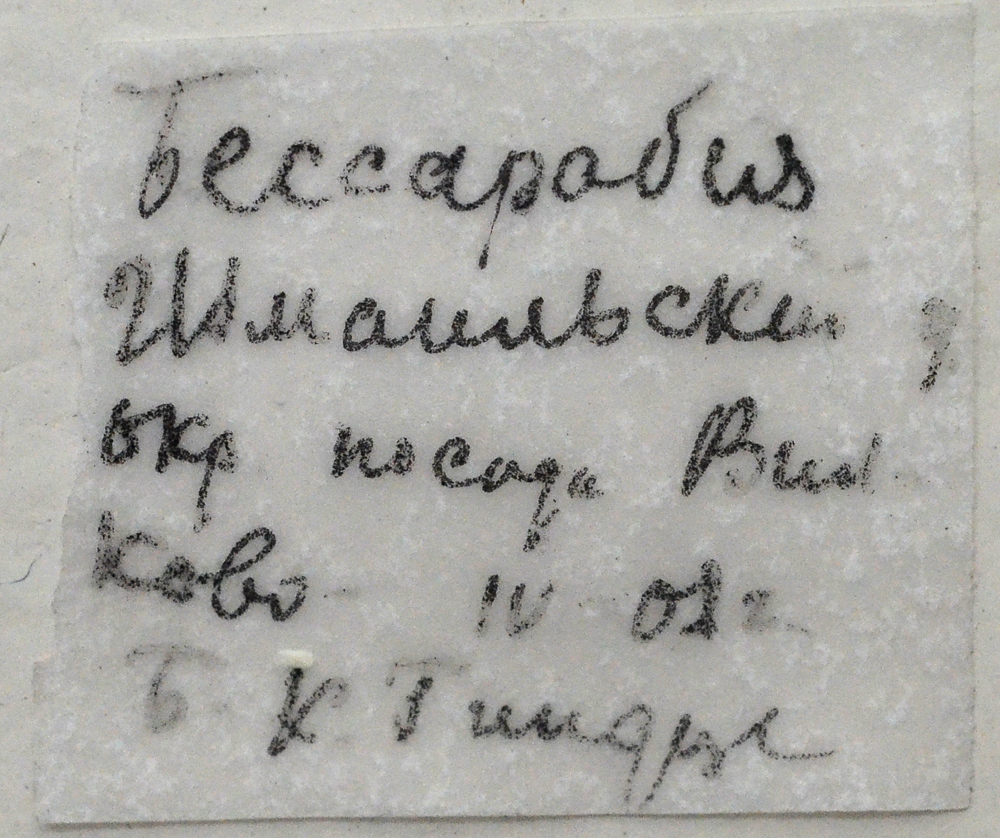 Бессарабия
Измаильский у
окр посада Вил
ково IV 08 г.
Б К Гиндце